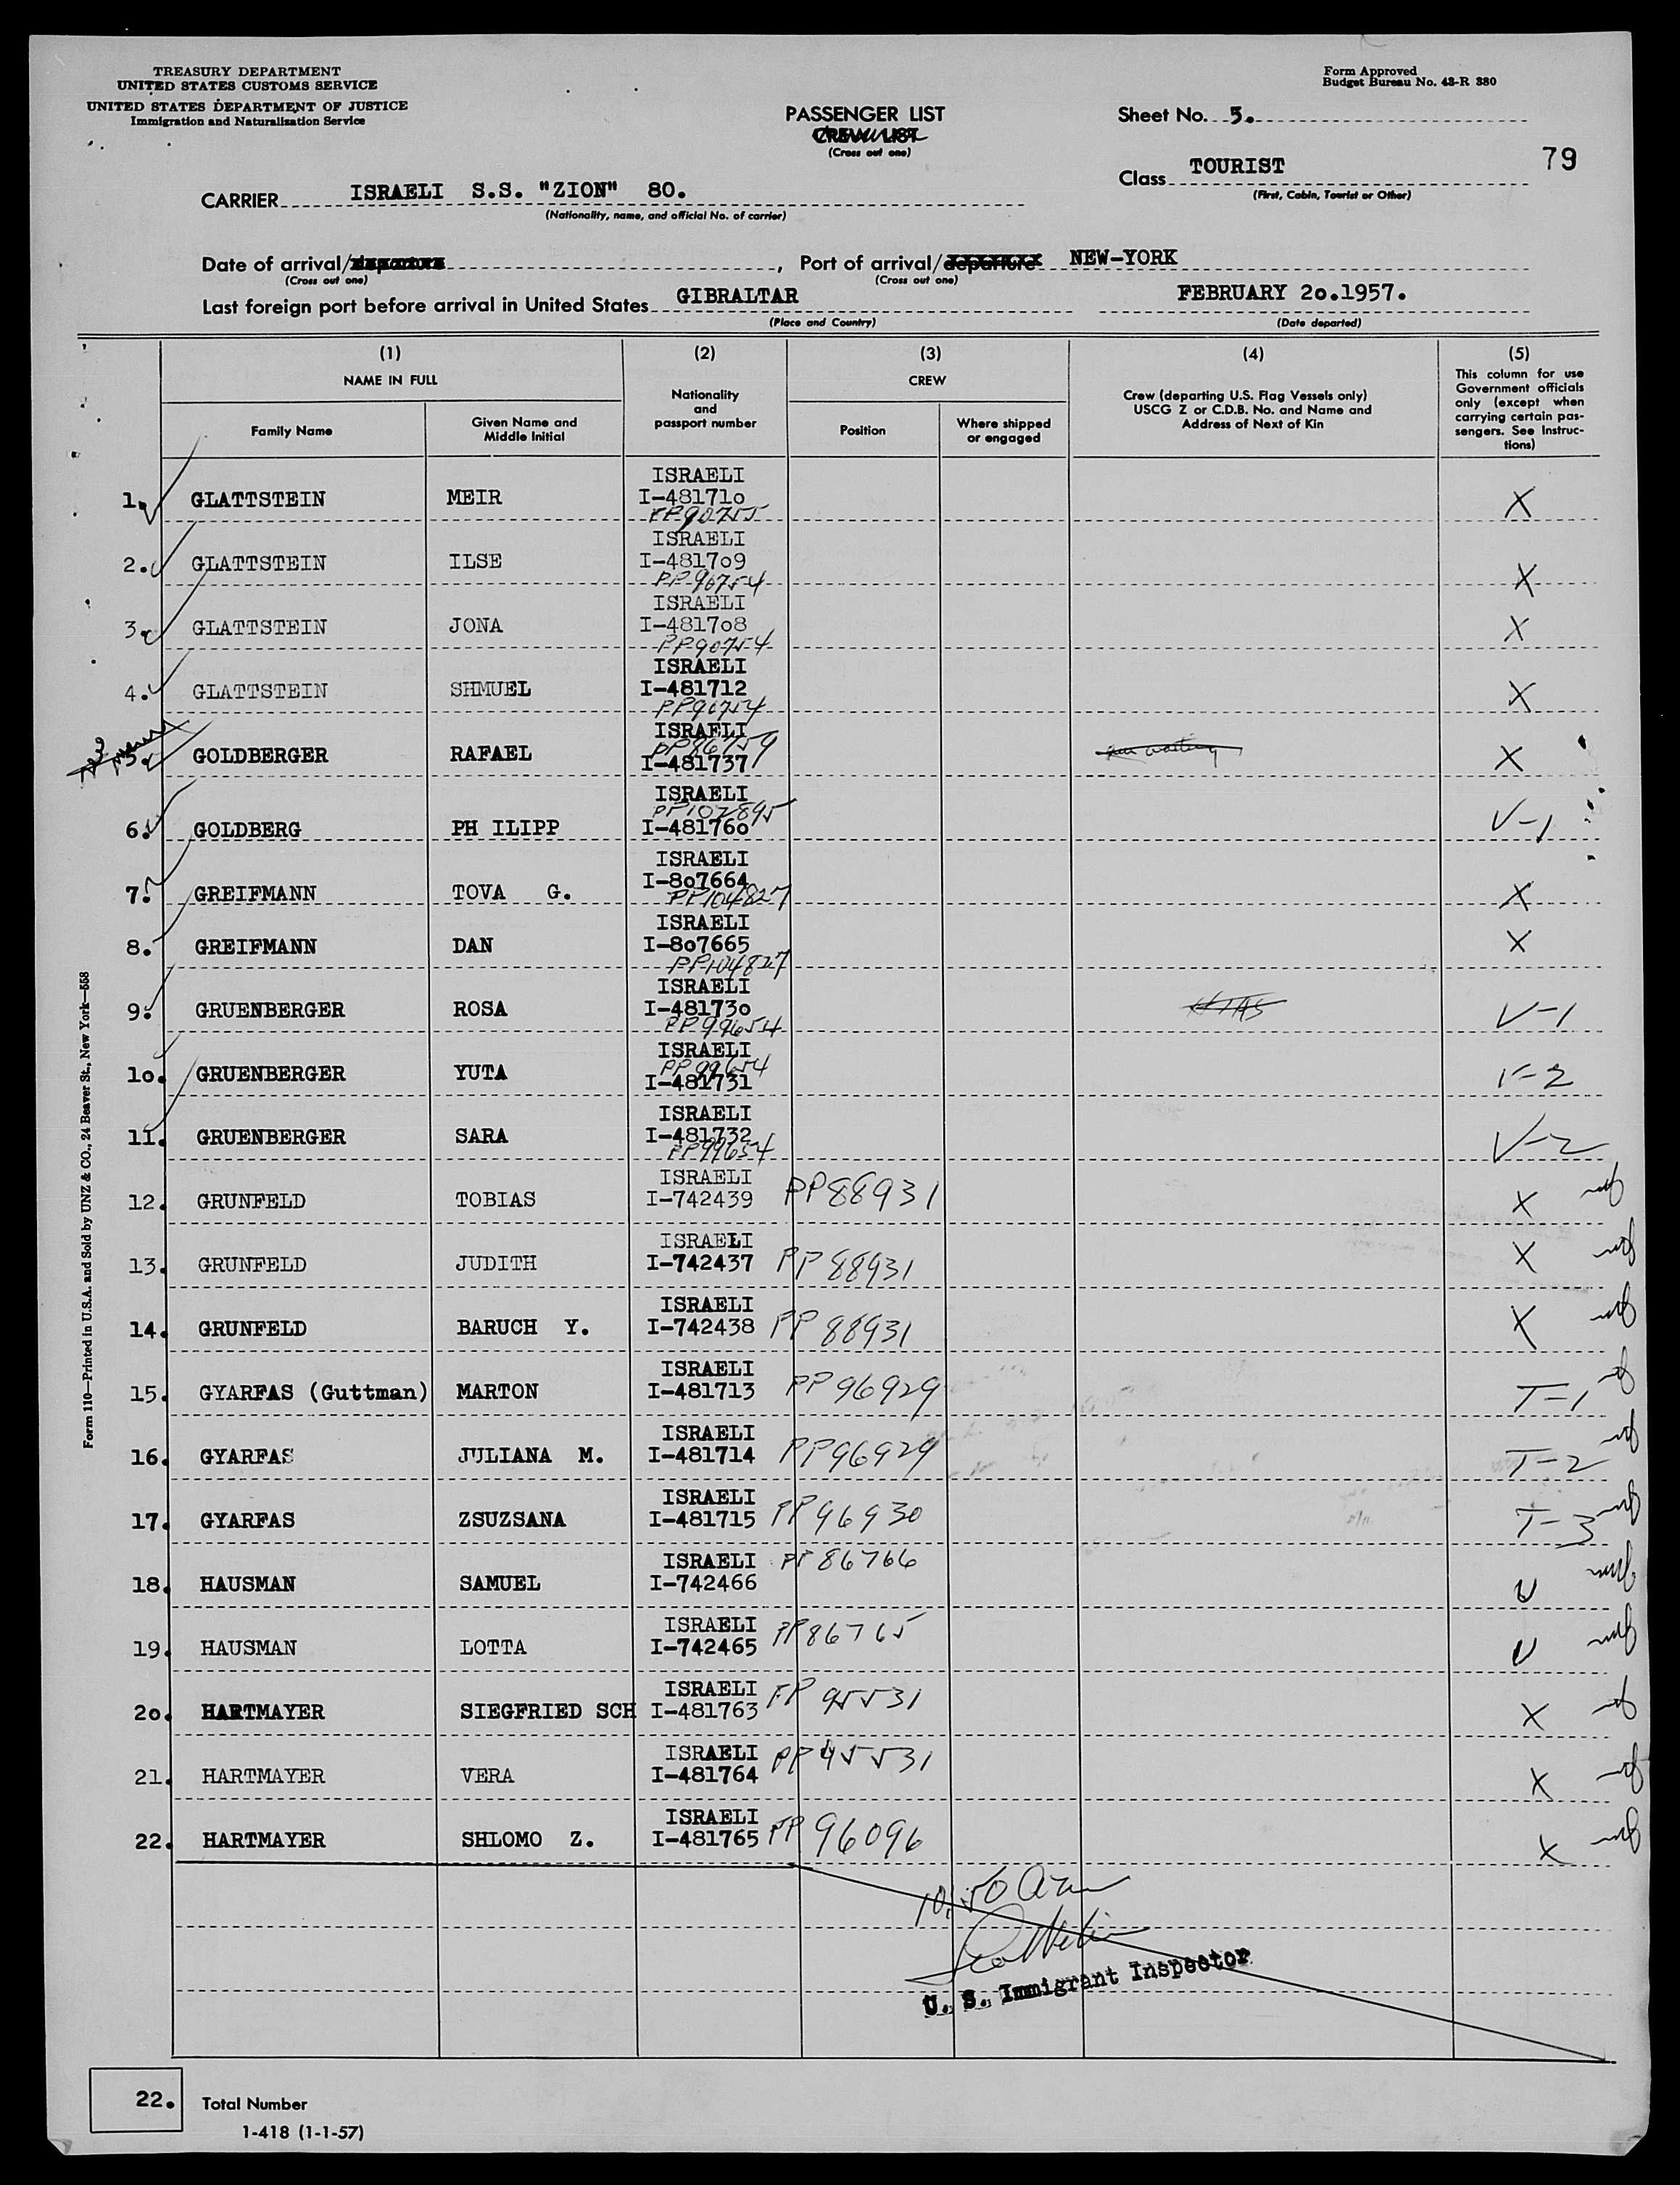 TREASURY DEPARTMENT
UNITED STATES CUSTOMS SERVICE
UNITED STATES DEPARTMENT OF JUSTICE
Immigration and Naturalization Service
Form Approved
Budget Bureau No. 43-R 380
PASSENGER LIST
CREW LIST
(Cross out one)
Sheet No. 5.
79
Class TOURIST
(First, Cabin, Tourist or Other)
CARRIER ISRAELI S.S. "ZION" 80.
(Nationality, name, and official No. of carrier)
Date of arrival/departure, Port of arrival/departure NEW-YORK
(Cross out one) (Cross out one)
Last foreign port before arrival in United States GIBRALTAR FEBRUARY 2o.1957.
(Place and Country) (Date departed)
(1) (2) (3) (4) (5)
NAME IN FULL
Family Name
Given Name and Middle Initial
Nationality and passport number
CREW
Position
Where shipped or engaged
Crew (departing U.S. Flag Vessels only)
USCG Z or C.D.B. No. and Name and
Address of Next of Kin
This column for use
Government officials
only (except when
carrying certain pas-
sengers. See Instruc-
tions)
ISRAELI
1. GLATTSTEIN MEIR I-48171o X
PP90755
ISRAELI
2. GLATTSTEIN ILSE I-4817o9 X
PP90754
ISRAELI
3. GLATTSTEIN JONA I-4817o8 X
PP90754
ISRAELI
4. GLATTSTEIN SHMUEL I-481712 X
PP90754
ISRAELI
PP86759
5. GOLDBERGER RAFAEL I-481737 X
ISRAELI
PP107895
6. GOLDBERG PH ILIPP I-48176o V-1
ISRAELI
7. GREIFMANN TOVA G. I-8o7664 X
PP104827
ISRAELI
8. GREIFMANN DAN I-8o7665 X
PP104827
ISRAELI
9. GRUENBERGER ROSA I-48173o HIAS V-1
PP99654
ISRAELI
PP99654
1o. GRUENBERGER YUTA I-481731 V-2
ISRAELI
11. GRUENBERGER SARA I-481732 V-2
PP99654
ISRAELI
12. GRUNFELD TOBIAS I-742439 PP88931 X
ISRAELI
13. GRUNFELD JUDITH I-742437 PP88931 X
ISRAELI
14. GRUNFELD BARUCH Y. I-742438 PP88931 X
ISRAELI
15. GYARFAS (Guttman) MARTON I-481713 PP96929 T-1
ISRAELI
16. GYARFAS JULIANA M. I-481714 PP96929 T-2
ISRAELI
17. GYARFAS ZSUZSANA I-481715 PP96930 T-3
ISRAELI
18. HAUSMAN SAMUEL I-742466 PP86766 U
ISRAELI
19. HAUSMAN LOTTA I-742465 PP86765 U
ISRAELI
2o. HARTMAYER SIEGFRIED SCH I-481763 PP95531 X
ISRAELI
21. HARTMAYER VERA I-481764 PP95531 X
ISRAELI
22. HARTMAYER SHLOMO Z. I-481765 PP96096 X
10:50 am
U. S. Immigrant Inspector
22. Total Number
1-418 (1-1-57)
Form 110—Printed in U.S.A. and Sold by UNZ & CO., 24 Beaver St., New York—558